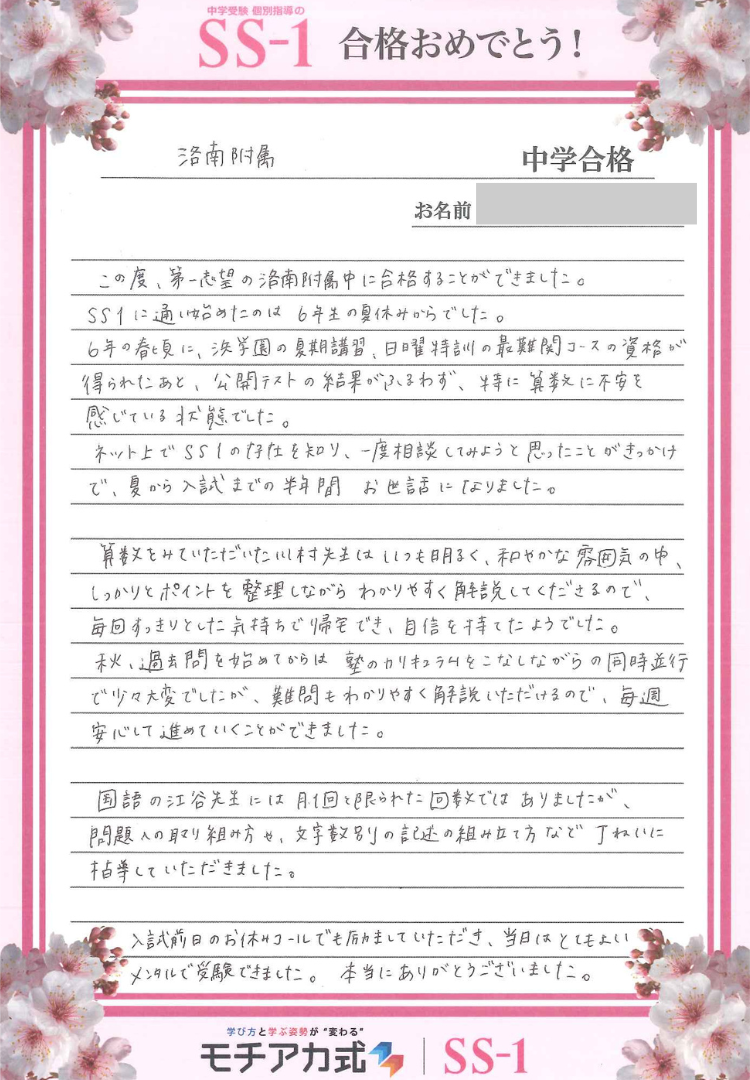 中学受験 個別指導の
SS-1 合格おめでとう!
洛南附属 中学合格
お名前
この度、第一志望の洛南附属中に合格することができました。
SS1に通い始めたのは 6年生の夏休みからでした。
6年の春頃に、浜学園の夏期講習、日曜特訓の最難関コースの資格が
得られたあと、公開テストの結果がふるわず、特に算数に不安を
感じている状態でした。
ネット上でSS1の存在を知り、一度相談してみようと思ったことがきっかけ
で、夏から入試までの半年間 お世話になりました。
算数をみていただいた川村先生はいつも明るく、和やかな雰囲気の中、
しっかりとポイントを整理しながらわかりやすく解説してくださるので、
毎回すっきりとした気持ちで帰宅でき、自信を持てたようでした。
秋、過去問を始めてからは 塾のカリキュラムをこなしながらの同時並行
で少々大変でしたが、難問もわかりやすく解説いただけるので、毎週
安心して進めていくことができました。
国語の江谷先生には月1回と限られた回数ではありましたが、
問題への取り組み方や、文字数別の記述の組み立て方など丁ねいに
指導していただきました。
入試前日のお休みコールでも励ましていただき、当日はとてもよい
メンタルで受験できました。 本当にありがとうございました。
学び方と学ぶ姿勢が“変わる”
モチアカ式 SS-1